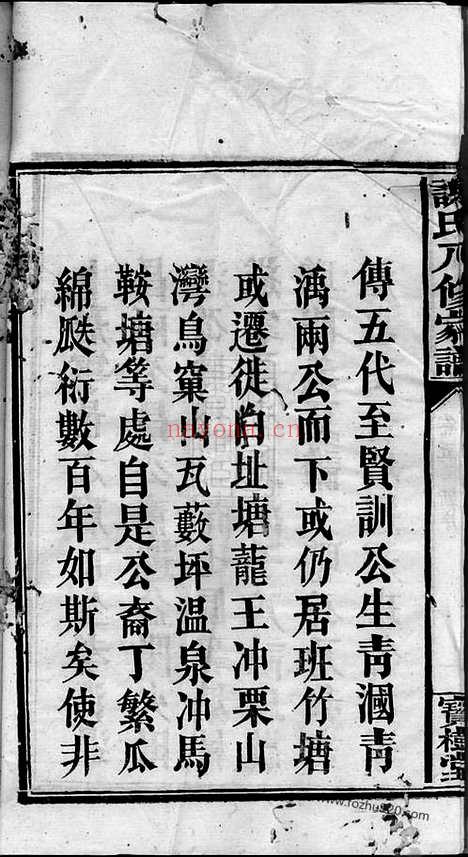 謝氏八修家譜
傳五代至賢訓公生青漍青
漓兩公而下或仍居班竹塘
或遷徙陷址塘龍王冲栗山
灣鳥窠山瓦藪坪温泉冲馬
鞍塘等處自是公裔丁繁瓜
綿瓞衍數百年如斯矣使非
寶樹堂
nayona.cn
www.rozhu520.com